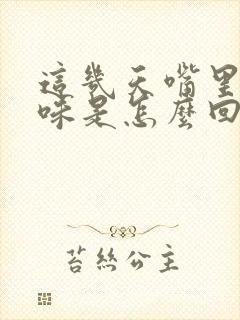 這幾天嘴里
味是怎麼回
苔絲公主